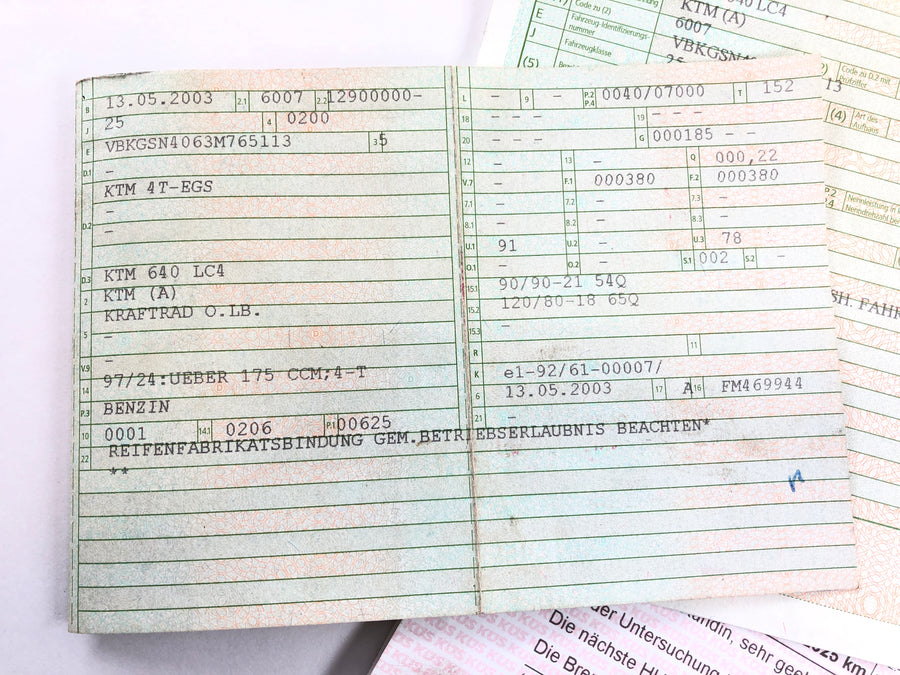 B 13.05.2003 2.1 6007 2.2 12900000-
J 25 4 0200
E VBKGSN4063M765113 3 5
D.1 -
KTM 4T-EGS
-
D.2 -
-
D.3 KTM 640 LC4
2 KTM (A)
5 KRAFTRAD O.LB.
-
V.9 -
14 97/24:UEBER 175 CCM;4-T
P.3 BENZIN
10 0001 14.1 0206 P.1 00625
22 REIFENFABRIKATSBINDUNG GEM.BETRIEBSERLAUBNIS BEACHTEN*
**
L - 9 - P.2 P.4 0040/07000 T 152
18 - - - 19 - - -
20 - - - G 000185 - -
12 - 13 - Q 000,22
V.7 - F.1 000380 F.2 000380
7.1 - 7.2 - 7.3 -
8.1 - 8.2 - 8.3 -
U.1 91 U.2 - U.3 78
O.1 - O.2 - S.1 002 S.2 -
15.1 90/90-21 54Q
15.2 120/80-18 65Q
15.3 -
R 11
K e1-92/61-00007/
6 13.05.2003 17 A 16 FM469944
21 -
Code zu (2)
640 LC4
KTM (A)
E Fahrzeug-Identifizierungs-
nummer
6007
J Fahrzeugklasse
VBKGSN4
(5)
25
Code zu D.2 mit
Prüfziffer
13
(4) Art des
Aufbaus
P.2
Nennleistung in
Nenndrehzahl bei
SH. FAHR
KÜS KÜS KÜS
der Untersuchung
Die nächste HU
Die Bre
sehr gee
2025 km